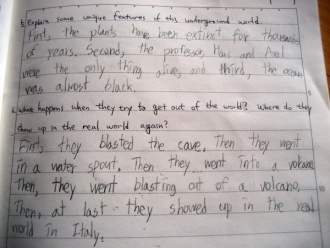 5. Explain some unique features of this underground world.
First, the plants have been extinct for thousands
of years. Second, the professor, Hans and Axel
were the only thing alive, and third, the ocean
was almost black.
6. What happens when they try to get out of the world? Where do they
show up in the real world again?
First, they blasted the cave. Then they went
in a water spout. Then they went into a volcano.
Then, they went blasting out of a volcano.
Then, at last they showed up in the real
world in Italy.